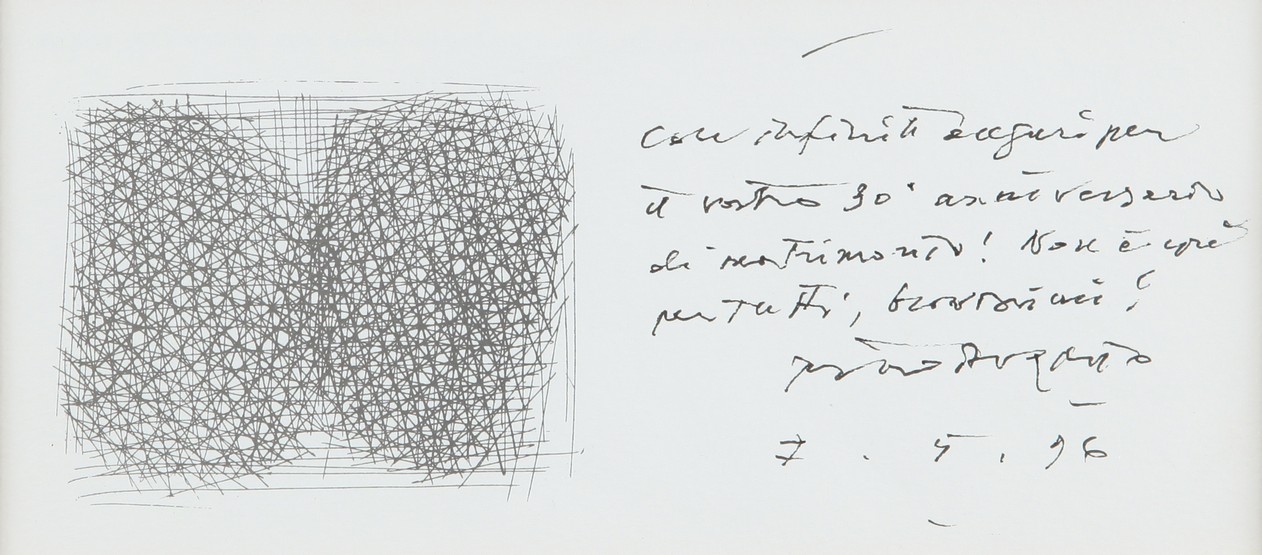 Con infiniti auguri per
il vostro 30° anniversario
di matrimonio! Non è
per tutti, !
Piero Dorazio
7 . 5 . 96